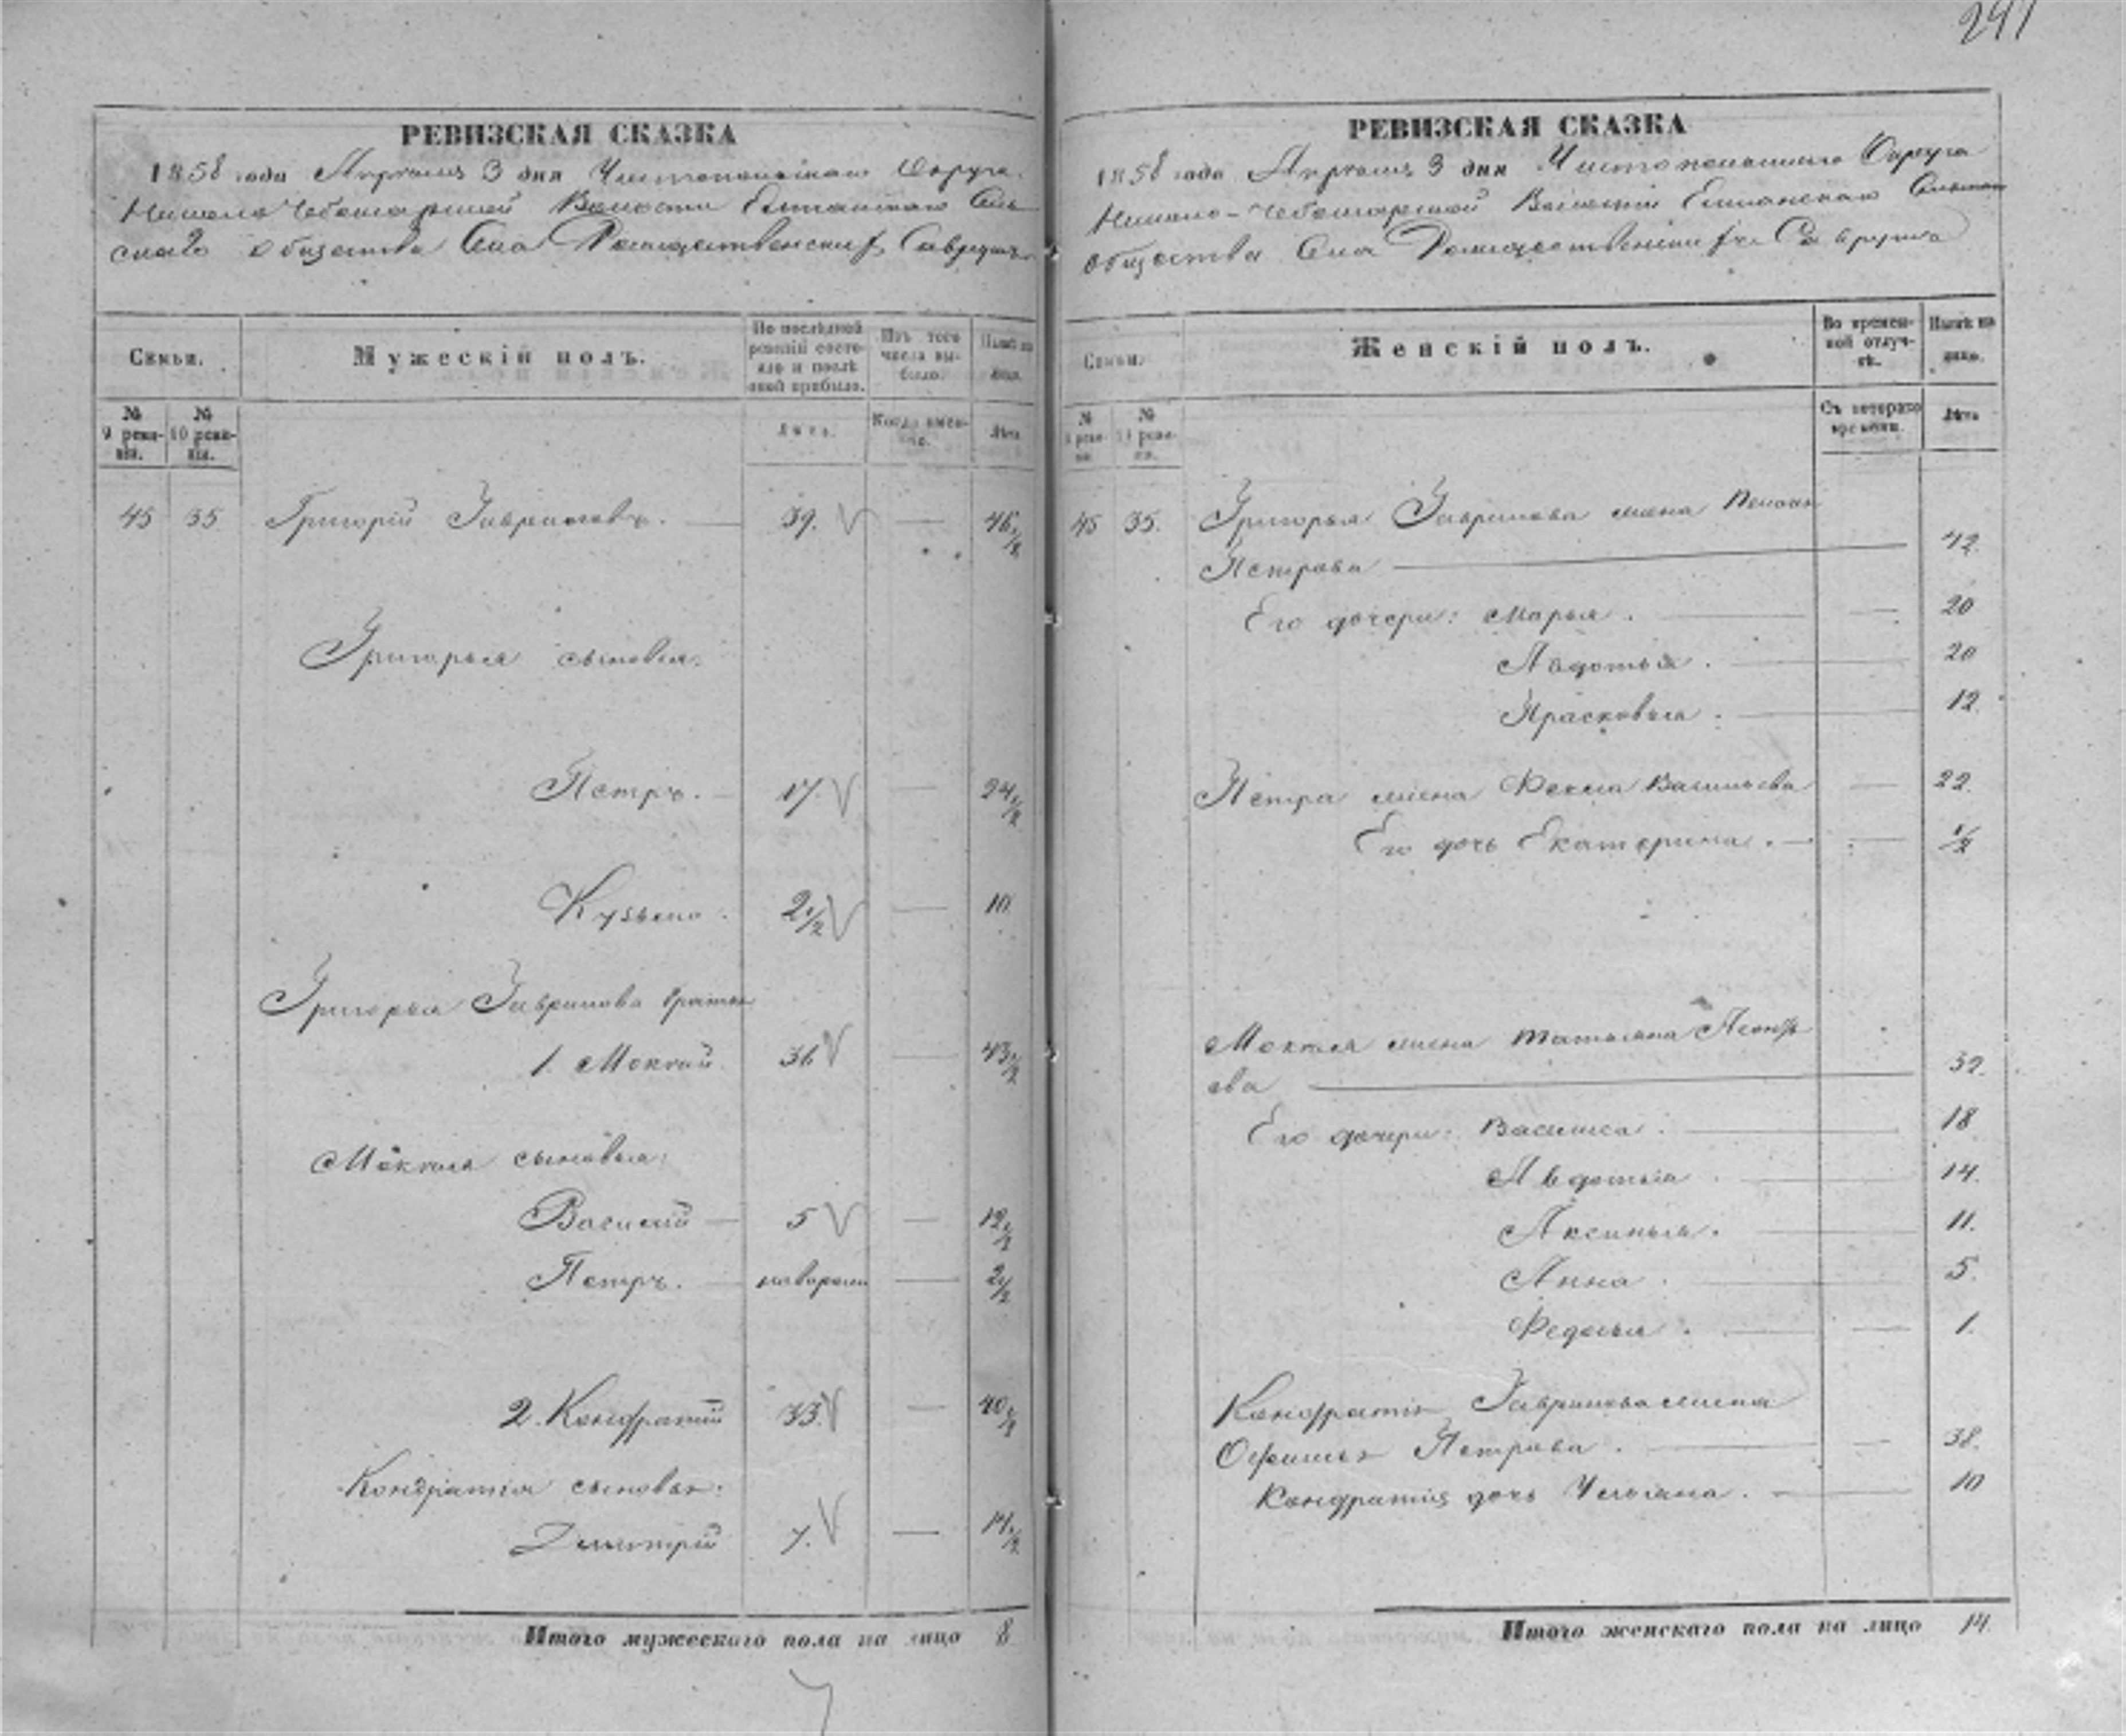 241
РЕВИЗСКАЯ СКАЗКА
1858 года Апреля 3 дня Чистопольскаго Округа
Волости Сель
скаго общества Села Рождественскiй Саврушъ
Семьи.
Мужескiй полъ.
По послѣдней ревизiи состояло и послѣ оной прибыло.
Изъ того числа выбыло.
Нынѣ на лицо.
№ 9 ревизiи.
№ 10 ревизiи.
Лѣта.
Когда именно.
Лѣта.
45 35 Григорiй Гавриловъ. — 39. — 46 1/2
Григорья сыновья:
Петръ. — 17. — 24 1/2
Кузьма. 2 1/2 — 10
Григорья Гаврилова братья
1. Мокей 36 — 43 1/2
Мокея сыновья:
Василiй — 5 — 12 1/2
Петръ. — новорож — 2 1/2
2. Кондратiй 33. — 40 1/2
Кондратiя сыновья:
Димитрiй 7. — 14 1/2
Итого мужескаго пола на лицо 8
РЕВИЗСКАЯ СКАЗКА
1858 года Апреля 3 дня Чистопольскаго Округа
Волости
общества Села Саврушъ
Семьи.
Женскiй полъ.
Во временной отлучкѣ.
Нынѣ на лицо.
№ 9 ревизiи.
№ 10 ревизiи.
Съ котораго времени.
Лѣта
45 35. Григорья Гаврилова жена
Петрова — 42.
Его дочери: Марья. — — 20
Авдотья. — 20
Прасковья. — 12.
Петра жена Фекла Васильева — 22.
Его дочь Екатерина. — — 1/2
Мокея жена Татьяна
ева — 39.
Его дочери: Василиса. — 18
Авдотья. — 14.
Аксинья. — 11.
Анна. — 5.
Федосья. — — 1.
Кондратiя Гаврилова жена
Петрова. — — 38.
Кондратiя дочь Ульяна. — 10
Итого женскаго пола на лицо 14.